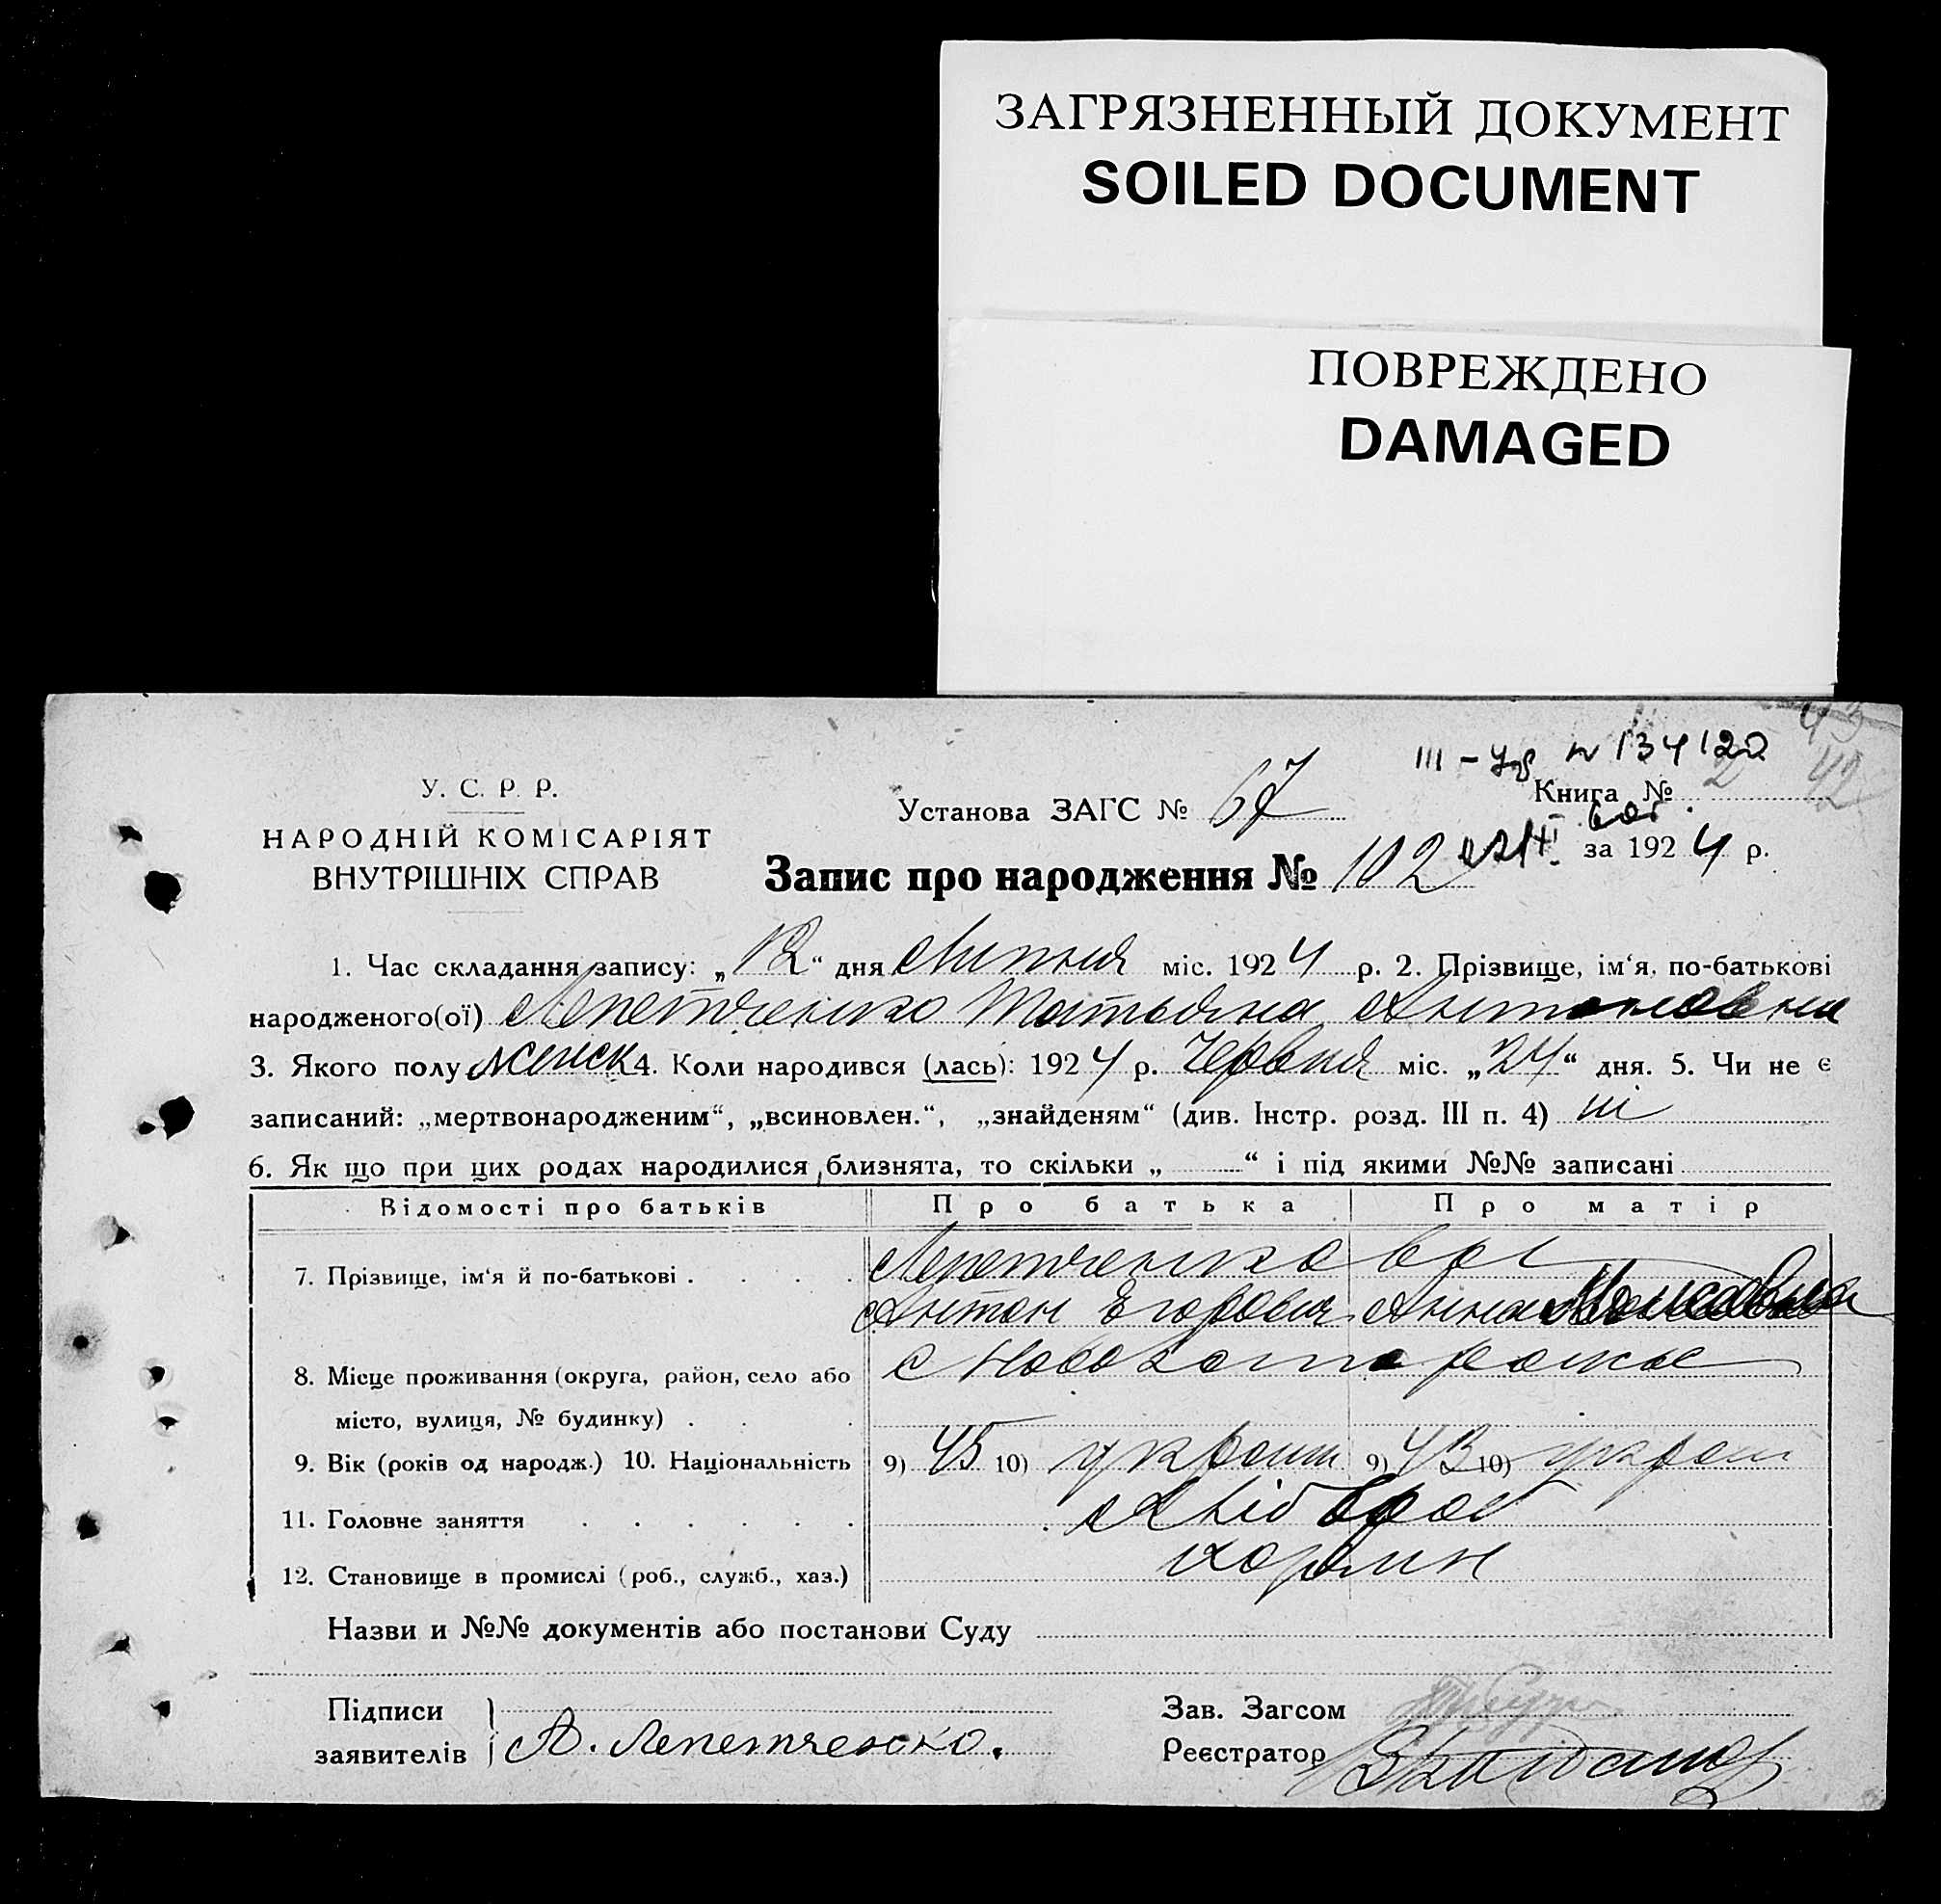 ЗАГРЯЗНЕННЫЙ ДОКУМЕНТ
SOILED DOCUMENT
ПОВРЕЖДЕНО
DAMAGED
43
III – № 134120
У. С. Р. Р.
Установа ЗАГС № 67
Книга № 2 42
НАРОДНІЙ КОМІСАРІЯТ
ВНУТРІШНІХ СПРАВ
Запис про народження № 102 за 1924 р.
1. Час складання запису: „12“ дня Липня міс. 1924 р. 2. Прізвище, ім‘я, по-батькові
народженого(ої) Лепетченко Татьяна Антоновна
3. Якого полу женск 4. Коли народився (лась): 1924 р. Червня міс. „24“ дня. 5. Чи не є
записаний: „мертвонародженим“, „всиновлен.“, „знайденям“ (див. Інстр. розд. III п. 4) ні
6. Як що при цих родах народилися близнята, то скільки „ “ і під якими №№ записані
Відомості про батьків Про батька Про матір
7. Прізвище, ім‘я й по-батькові . . . . Лепетченко
Антон Егорович Анна
8. Місце проживання (округа, район, село або с
місто, вулиця, № будинку) . . .
9. Вік (років од народж.) 10. Національність 9) 45 10) украин 9) 43 10) украин
11. Головне заняття . . . . . . Хлібороб
12. Становище в промислі (роб., служб., хаз.)
Назви и №№ документів або постанови Суду
Підписи
заявителів А. Лепетченко.
Зав. Загсом
Реєстратор